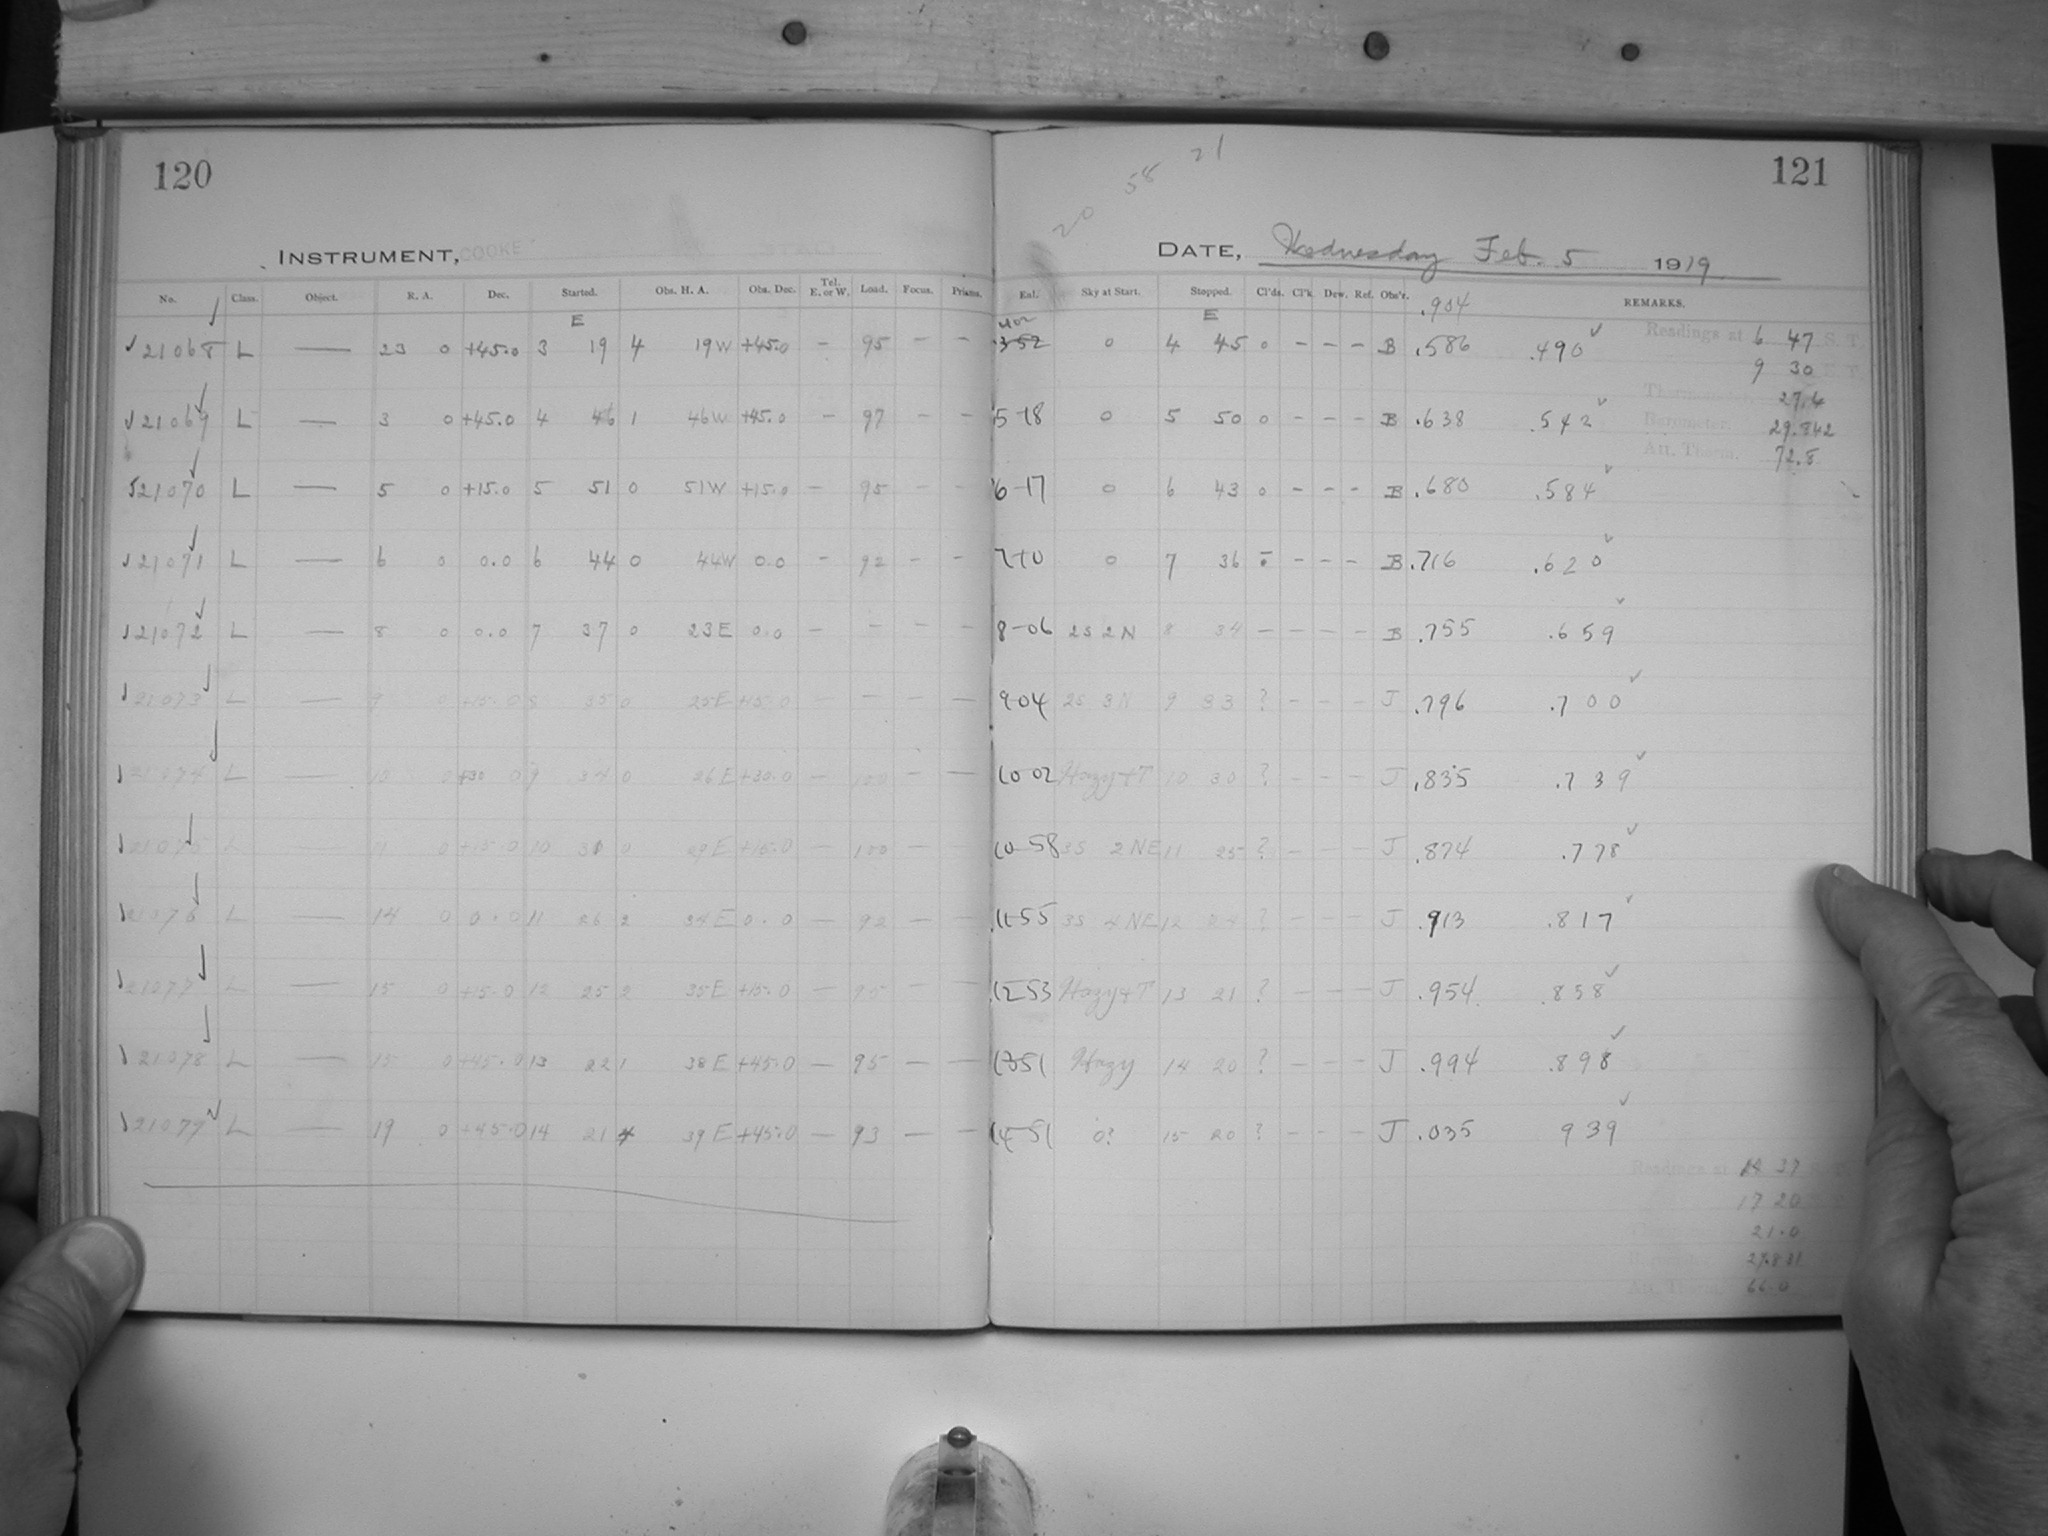 120
INSTRUMENT, COOKE
No. Class. Object. R. A. Dec. Started. Obs. H. A. Obs. Dec. Tel. E. or W. Load. Focus. Prisms.
E
21068 L — 23 0 +45.0 3 19 4 19W +45.0 – 95 – –
21069 L — 3 0 +45.0 4 46 1 46W +45.0 – 97 – –
21070 L — 5 0 +15.0 5 51 0 51W +15.0 – 95 – –
21071 L — 6 0 0.0 6 44 0 44W 0.0 – 92 – –
21072 L — 8 0 0.0 7 37 0 23E 0.0 – – – –
21073 L — 9 0 +15.0 8 35 0 25E +15.0 – – – —
21074 L — 10 0 +30 0 9 34 0 26E +30.0 — 100 – —
21075 L — 11 0 +15.0 10 31 0 29E +15.0 – 100 — —
21076 L — 14 0 0.0 11 26 2 34E 0.0 — 92 – —
21077 L — 15 0 +15.0 12 25 2 35E +15.0 — 95 – —
21078 L — 15 0 +45.0 13 22 1 38E +45.0 — 95 — —
21079 L — 19 0 +45.0 14 21 4 39E +45.0 — 93 — —
20 58 21
121
DATE, Wednesday Feb. 5 1919
Sky at Start. Stopped. Cl'ds. Cl'k. Dew. Ref. Obs'r. REMARKS.
E .904
402
352 0 4 45 0 – – – B .586 .490
5-18 0 5 50 0 – – – B .638 .542
6-17 0 6 43 0 – – – B .680 .584
7-10 0 7 36 – – – B .716 .620
8-06 2S 2N 8 34 – – – – B .755 .659
9-04 2S 3N 9 33 ? – – – J .796 .700
10-02 Hazy+T 10 30 ? – – – J .835 .739
10-58 3S 2NE 11 25 ? – – – J .874 .778
11-55 3S 4NE 12 24 ? – – – J .913 .817
12-53 Hazy+T 13 21 ? – – – J .954 .858
1351 Hazy 14 20 ? – – – J .994 .898
14-51 0? 15 20 ? – – – J .035 939
Readings at 6 47 S. T.
9 30 E. T.
Thermometer, 27.4
Barometer. 29.842
Att. Therm. 72.8
Readings at 14 37 S. T.
17 20
21.0
29.831
Att. Therm. 66.0